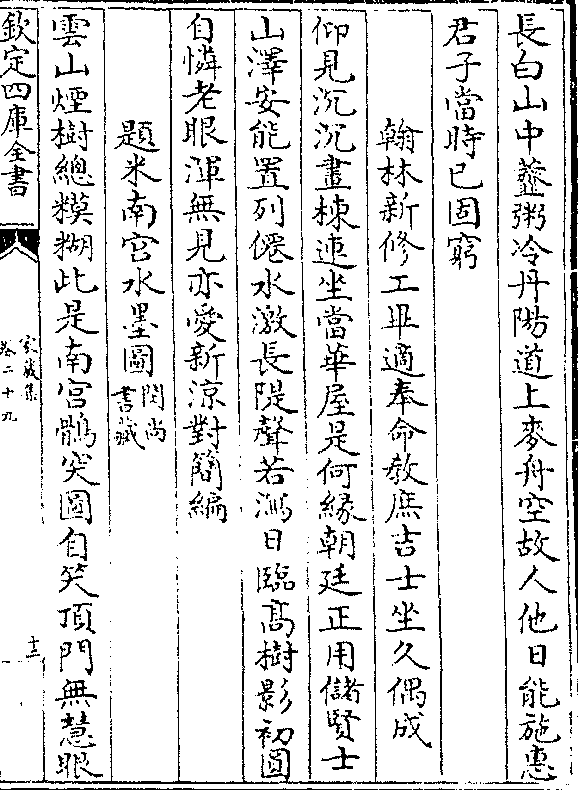 長白山中虀粥冷丹陽道上麥舟空故人他日能施惠
君子當時已固窮
翰林新修工畢適奉命教庶吉士坐久偶成
仰見沉沉畫棟連坐當華屋是何緣朝廷正用儲賢士
山澤安能置列僊水激長隄聲若瀉日臨髙樹影初圓
自憐老眼渾無見亦愛新涼對簡編
題米南宮水墨圖閔尚書藏
雲山煙樹總糢糊此是南宮鶻突圖自笑頂門無慧眼
欽定四庫全書
家藏集
卷二十九
十三